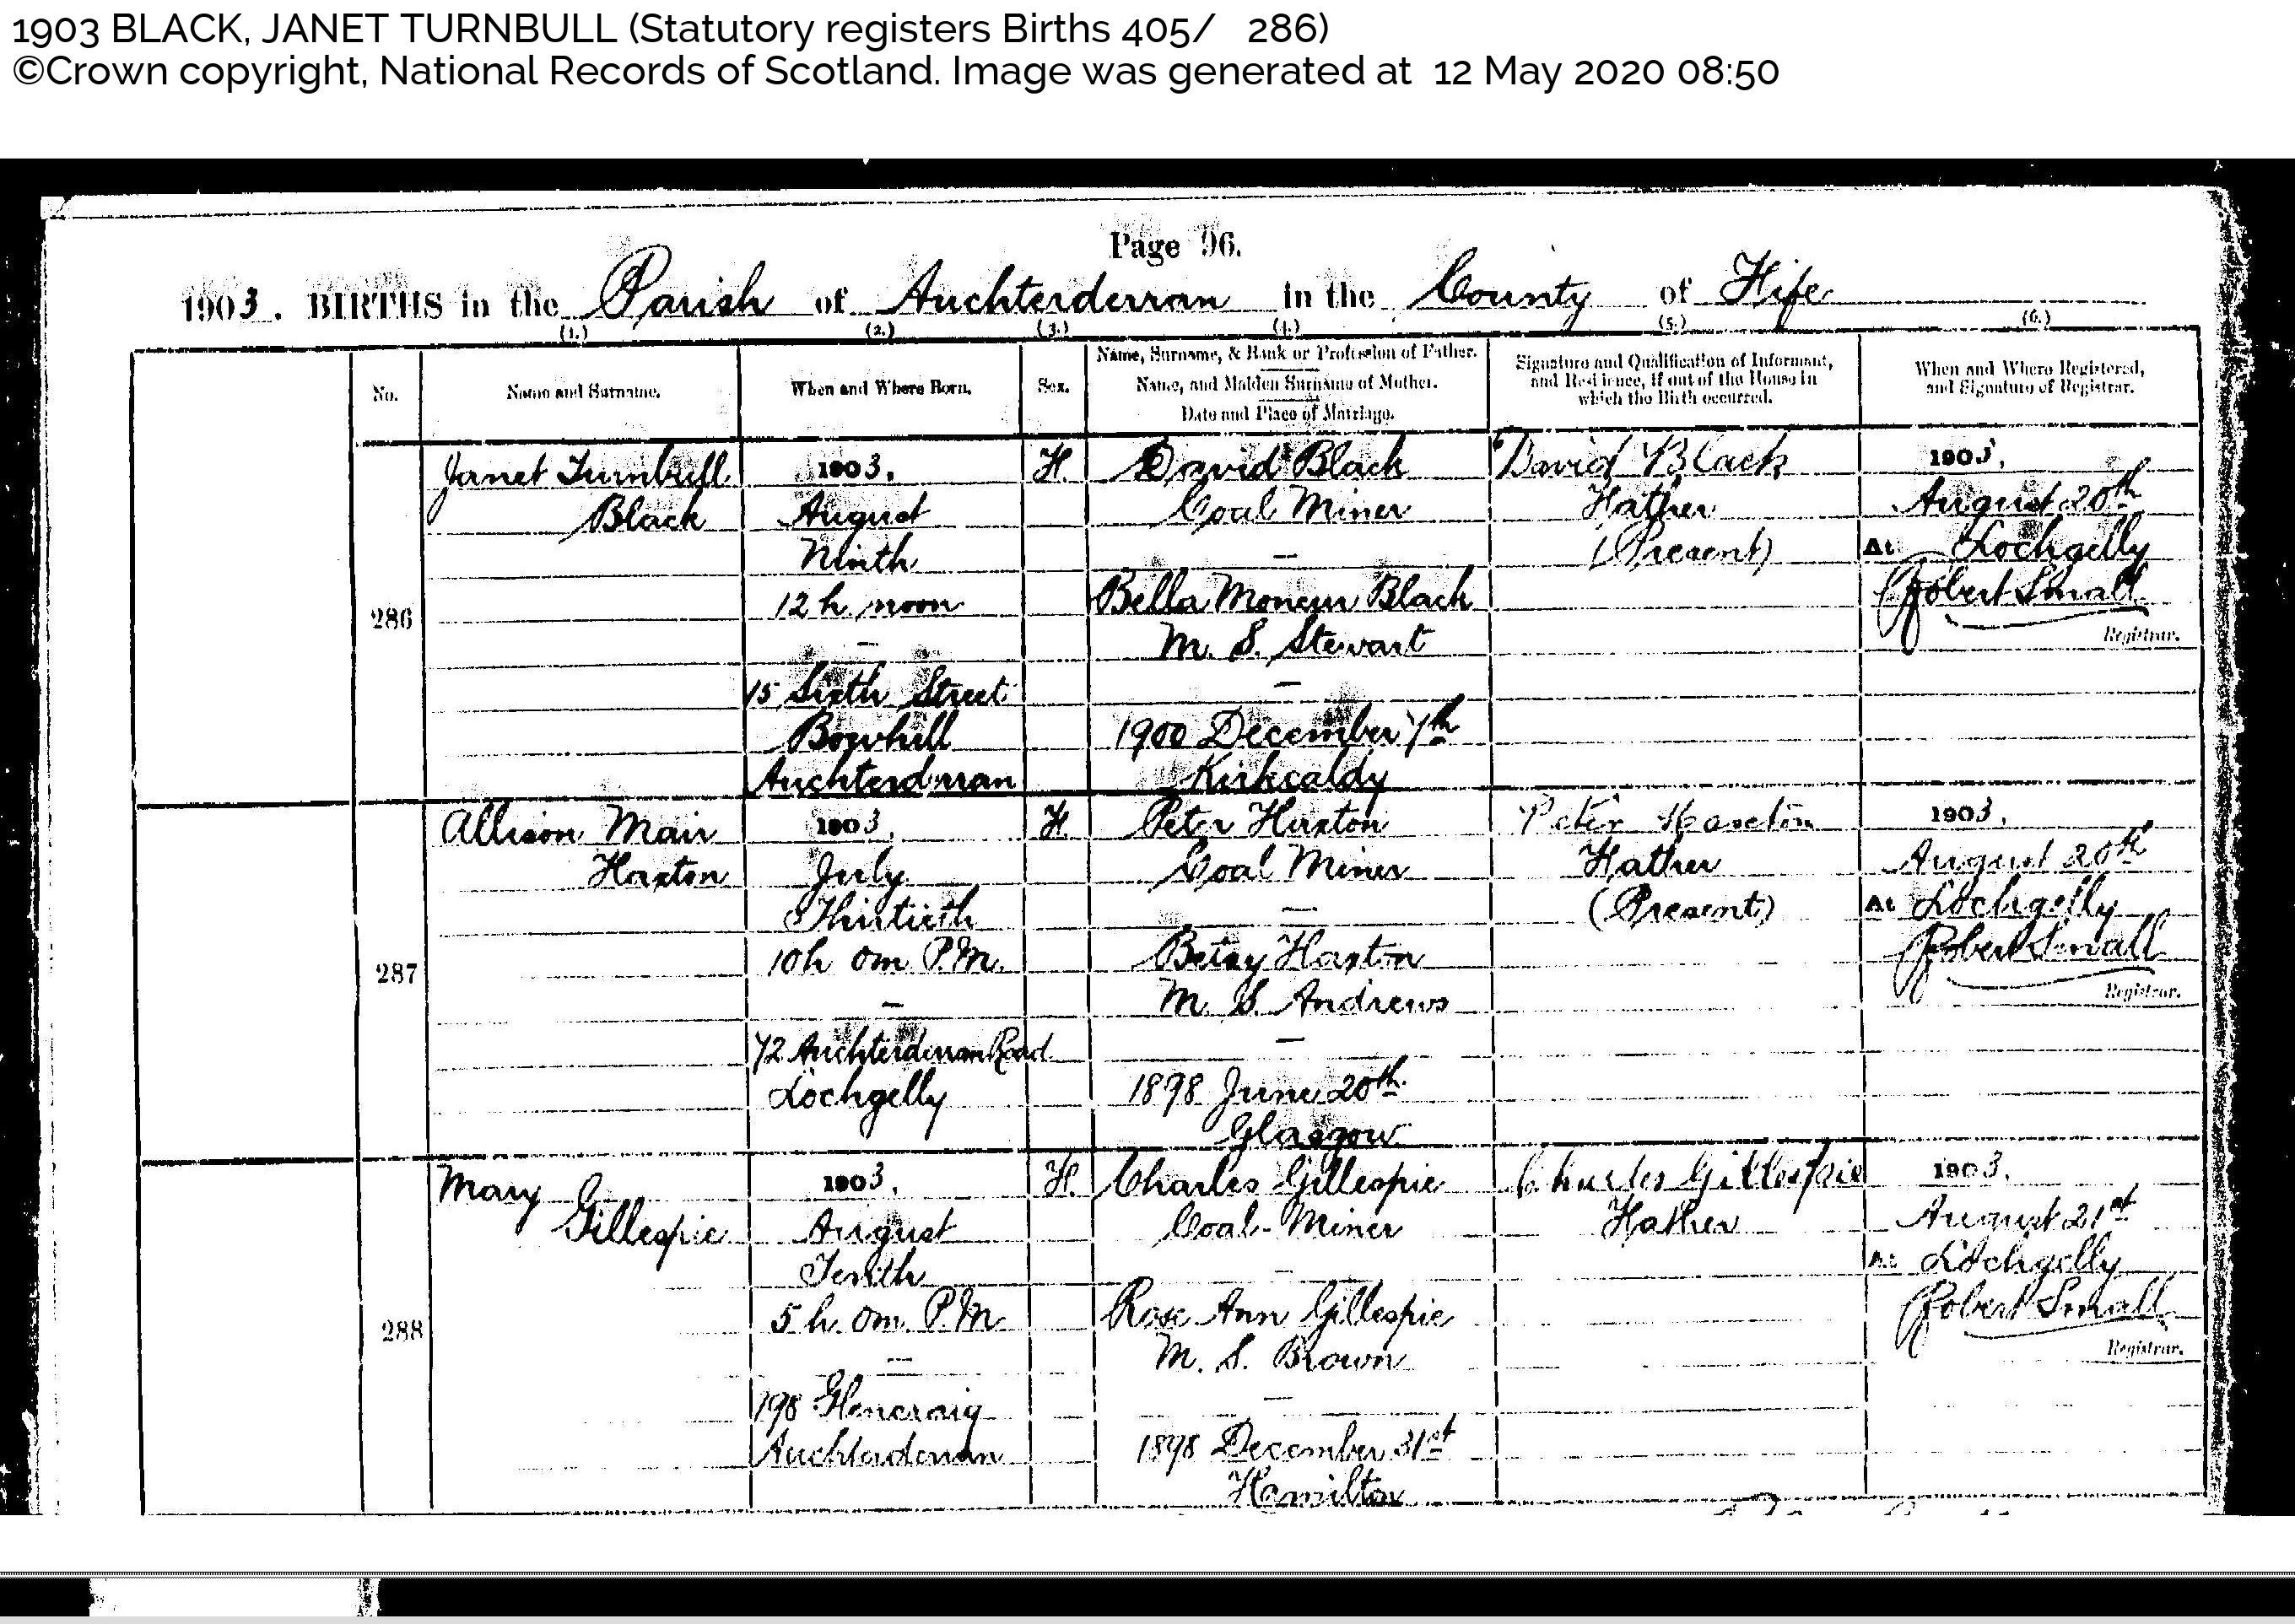 1903 BLACK, JANET TURNBULL (Statutory registers Births 405/ 286)
©Crown copyright, National Records of Scotland. Image was generated at 12 May 2020 08:50
Page 96.
1903. BIRTHS in the Parish of Auchterderran in the County of Fife
(1.) (2.) (3.) (4.) (5.) (6.)
No.
Name and Surname.
When and Where Born.
Sex.
Name, Surname, & Rank or Profession of Father.
Name, and Maiden Surname of Mother.
Date and Place of Marriage.
Signature and Qualification of Informant,
and Residence, if out of the House in
which the Birth occurred.
When and Where Registered,
and Signature of Registrar.
286
Janet Turnbull
Black
1903,
August
Ninth
12 h noon
—
15 Sixth Street
Bowhill
Auchterderran
F.
David Black
Coal Miner
—
Bella Moncur Black
M. S. Stewart
—
1900 December 7th
Kirkcaldy
David Black
Father
(Present)
1903,
August 20th
At Lochgelly
Robert Small
Registrar.
287
Allison Mair
Haxton
1903,
July
Thirtieth
10h 0m P.M.
—
72 Auchterderran Road
Lochgelly
F.
Peter Haxton
Coal Miner
—
Betsy Haxton
M. S. Andrews
—
1898 June 20th
Glasgow
Peter Haxton
Father
(Present)
1903,
August 20th
At Lochgelly
Robert Small
Registrar.
288
Mary
Gillespie
1903,
August
Tenth
5 h. 0m. P.M.
—
198 Glencraig
Auchterderran
F.
Charles Gillespie
Coal-Miner
—
Rose Ann Gillespie
M. S. Brown
—
1898 December 31st
Hamilton
Charles Gillespie
Father
1903,
August 21st
At Lochgelly
Robert Small
Registrar.